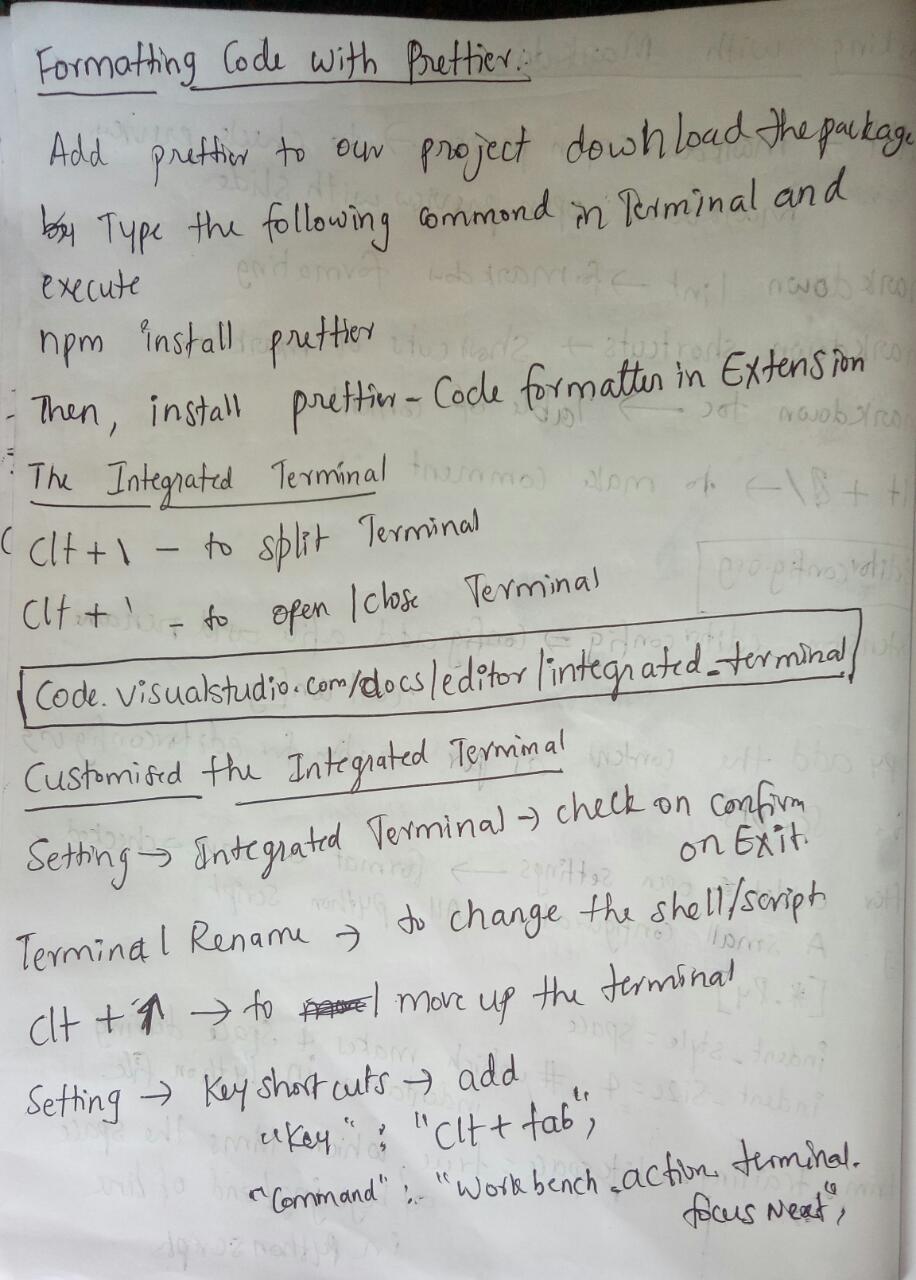 Formatting Code with Prettier:
Add prettier to our project download the package
by Type the following commond in Terminal and
execute
npm install prettier
- Then, install prettier - Code formatter in Extension
The Integrated Terminal
Clt + \ - to split Terminal
Clt + ` - to open / close Terminal
Code.visualstudio.com/docs/editor/integrated_terminal
Customised the Integrated Terminal
Setting → Integrated Terminal → check on confirm
on Exit.
Terminal Rename → to change the shell/script
Clt + ↑ → to move up the terminal
Setting → Key short cuts → add
"Key" : "Clt + tab",
"Command" : "Workbench.action.terminal.
focus Next",